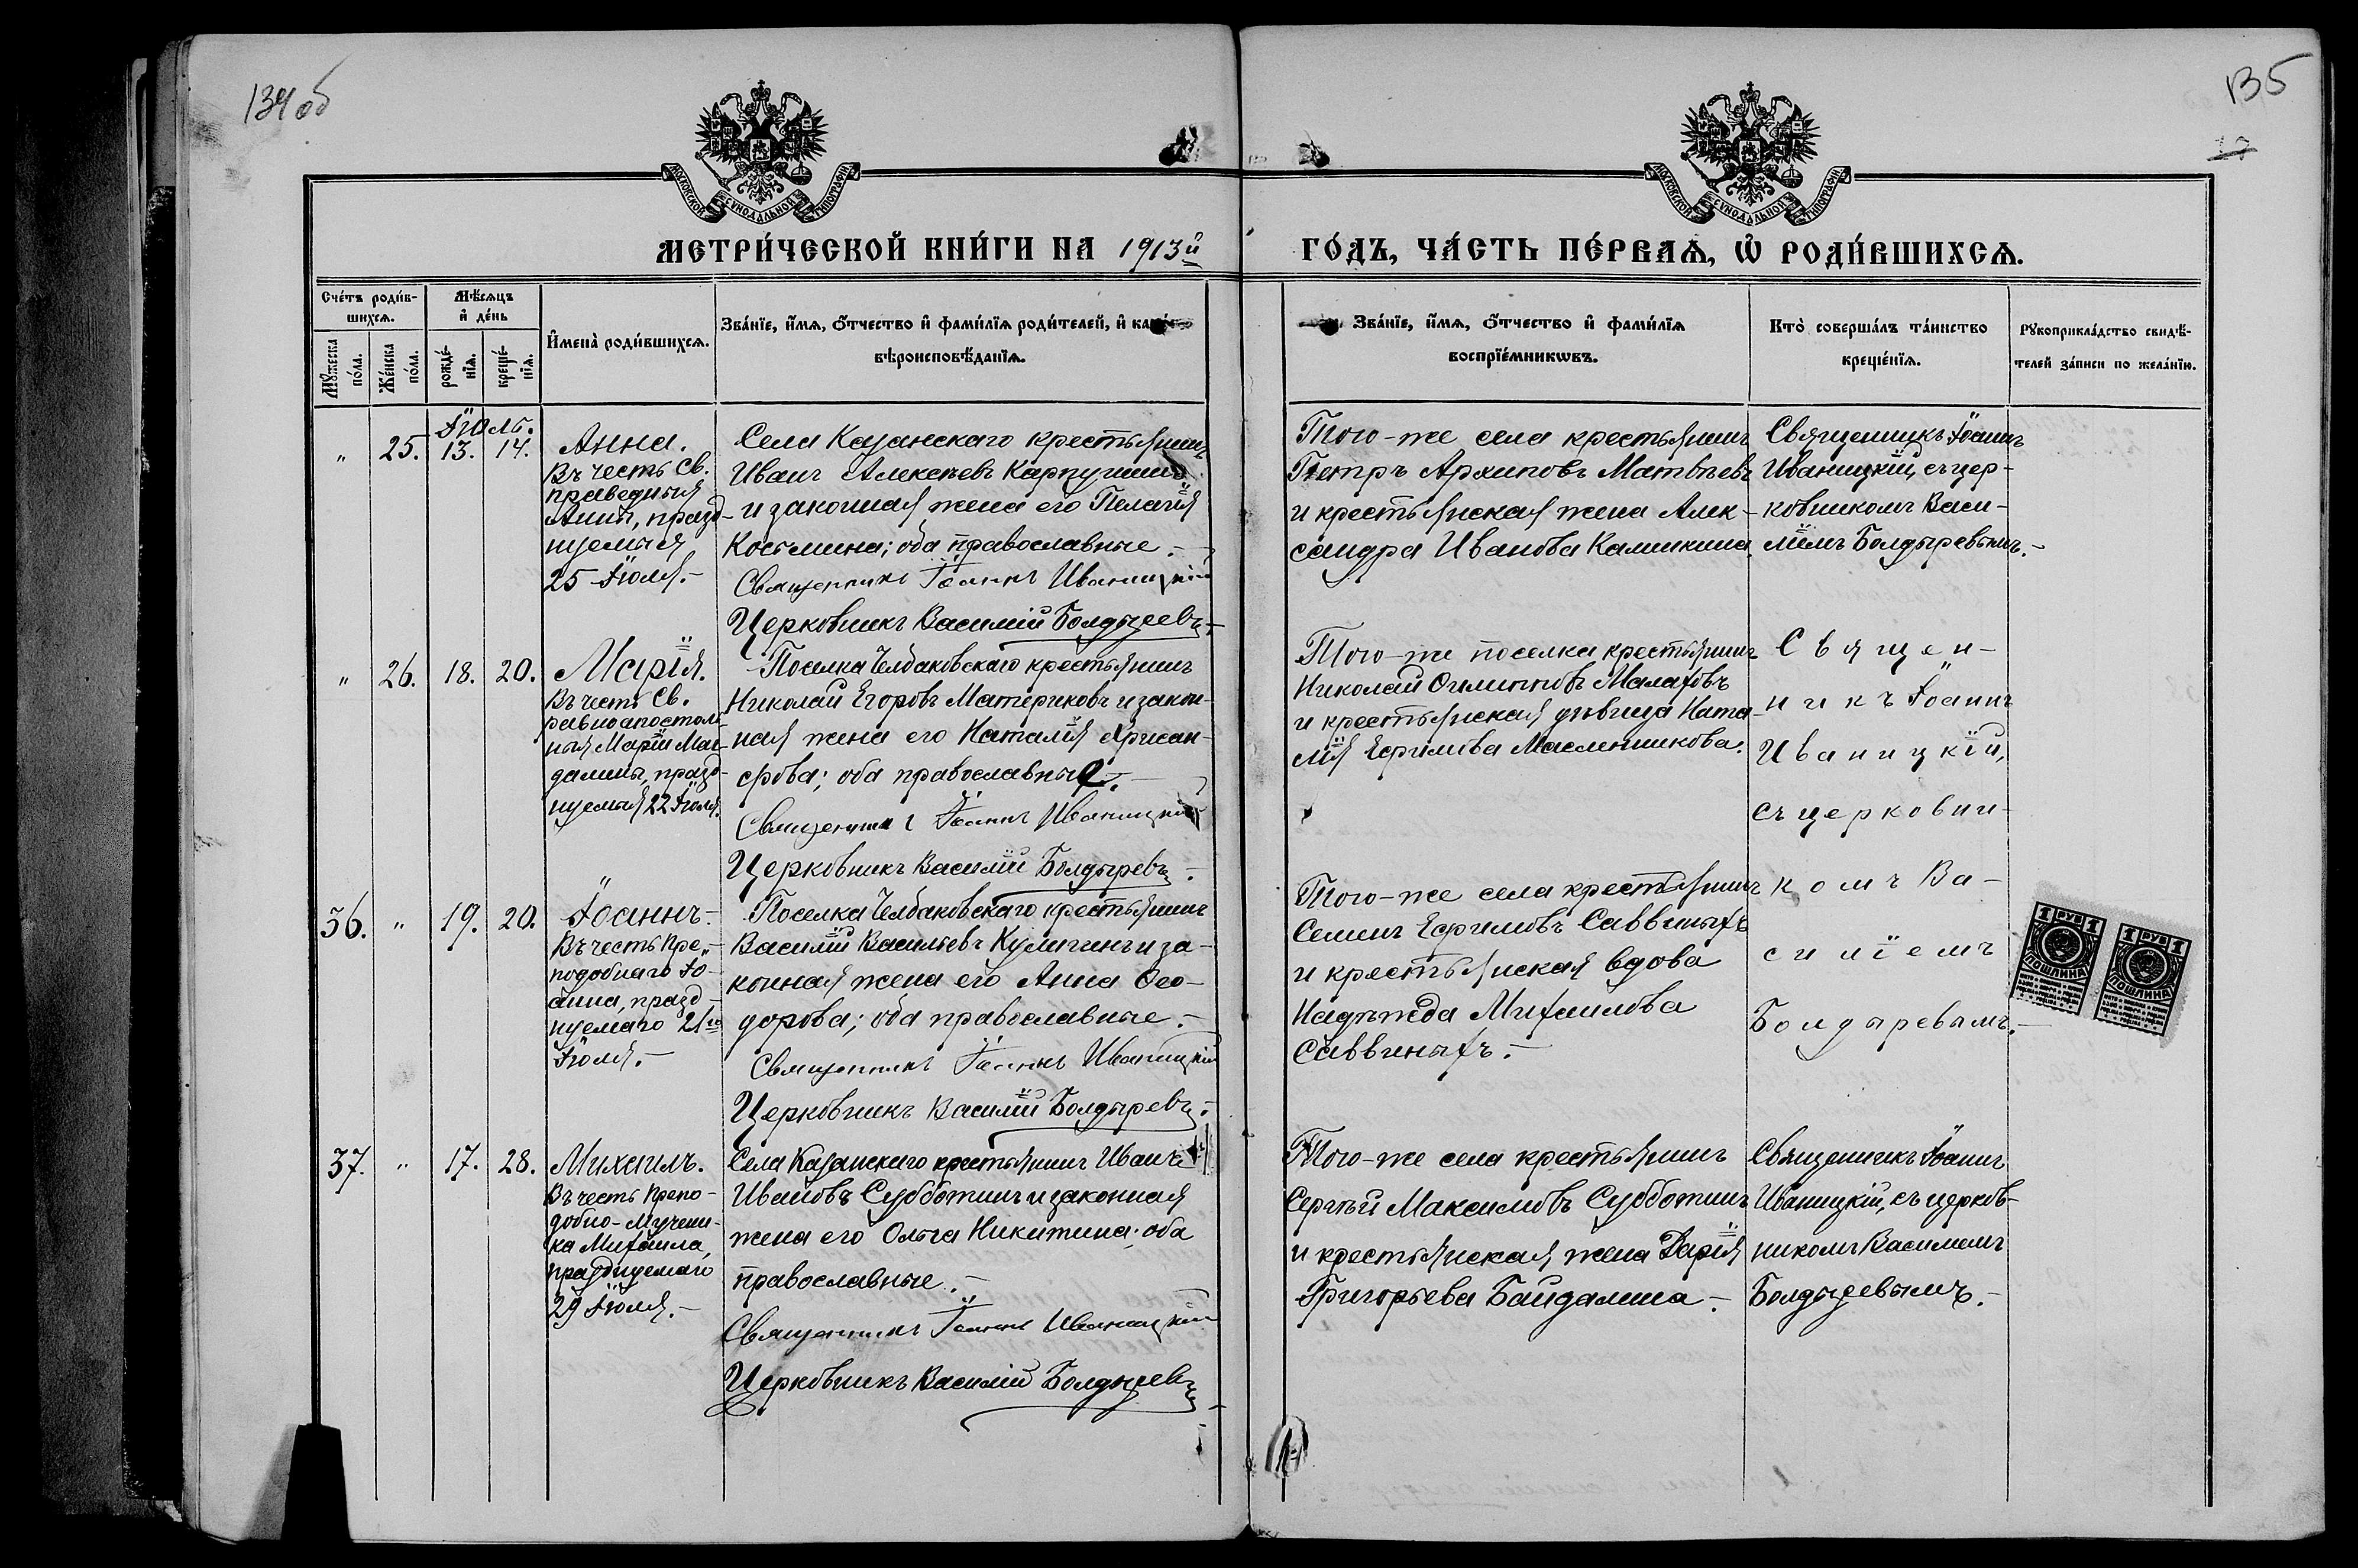 134об
135
17
МОСКОВСКОЙ СѴНОДАЛЬНОЙ ТИПОГРАФІИ
МОСКОВСКОЙ СѴНОДАЛЬНОЙ ТИПОГРАФІИ
МЕТРИ́ЧЕСКОЙ КНИ́ГИ НА 1913й
ГО́ДЪ, ЧА́СТЬ ПЕ́РВАЯ, Ѡ РОДИ́ВШИХСЯ.
Сче́тъ роди́в-
шихся.
Мѣ́сяцъ
и де́нь
Му́жеска
по́ла.
Же́нска
по́ла.
рожде́-
нїя.
креще́-
нїя.
Имена̀ роди́вшихся.
Зва́нїе, и́мя, о́тчество и фами́лїя роди́телей, и
вѣроисповѣ́данїя.
Зва́нїе, и́мя, о́тчество и фами́лїя
воспрїе́мникѡвъ.
Кто̀ соверша́лъ та́инство
креще́нїя.
Рукоприкла́дство свидѣ́-
телей за́писи по жела́нїю.
Іюль.
" 25. 13. 14.
Анна.
Въ честь Св.
праведныя
Анны, празд-
нуемыя
25 Іюля.-
Села Казанскаго крестьянинъ
Иванъ Алексѣевъ Карпушинъ
и законная жена его Пелагія
Косьмина; оба православные.-
Священникъ Іоаннъ Иваницкій
Церковникъ Василій Болдыревъ.-
Того-же села крестьянинъ
Петръ Архиповъ Матвѣевъ
и крестьянская жена Алек-
сандра Иванова Калинкина
Священникъ Іоаннъ
Иваницкій, съ цер-
ковникомъ Васи-
ліемъ Болдыревымъ.-
" 26. 18. 20.
Марія.
Въ честь Св.
равноапостоль-
ныя Маріи Маг-
далины, празд-
нуемыя 22 Іюля.
Поселка Челбаковскаго крестьянинъ
Николай Егоровъ Материковъ и закон-
ная жена его Наталія Хрисан-
фова; оба православные.-
Священникъ Іоаннъ Иваницкій
Церковникъ Василій Болдыревъ.
Того-же поселка крестьянинъ
Николай Филипповъ Малаховъ
и крестьянская дѣвица Ната-
лія Ефимова Масленникова.
Священ-
никъ Іоаннъ
Иваницкій,
съ церковни-
комъ Ва-
силіемъ
Болдыревымъ.-
36. " 19. 20.
Іоаннъ.-
Въ честь Пре-
подобнаго Іо-
анна, празд-
нуемаго 21го
Іюля.-
Поселка Челбаковскаго крестьянинъ
Василій Васильевъ Кулигинъ и за-
конная жена его Анна Ѳео-
дорова; оба православные.-
Священникъ Іоаннъ Иваницкій
Церковникъ Василій Болдыревъ.-
Того-же села крестьянинъ
Семенъ Ефимовъ Саввиныхъ
и крестьянская вдова
Надежда Михаилова
Саввиныхъ.-
1 РУБ 1
ПОШЛИНА
1 РУБ 1
ПОШЛИНА
37. " 17. 28.
Михаилъ.
Въ честь Препо-
добно-Мучени-
ка Михаила,
празднуемаго
29 Іюля.-
Села Казанскаго крестьянинъ Иванъ
Ивановъ Субботинъ и законная
жена его Ольга Никитина; оба
православные.-
Священникъ Іоаннъ Иваницкій
Церковникъ Василій Болдыревъ
Того-же села крестьянинъ
Сергѣй Максимовъ Субботинъ
и крестьянская жена Дарія
Григорьева Байдалина.-
Священникъ Іоаннъ
Иваницкій, съ церков-
никомъ Василіемъ
Болдыревымъ.-